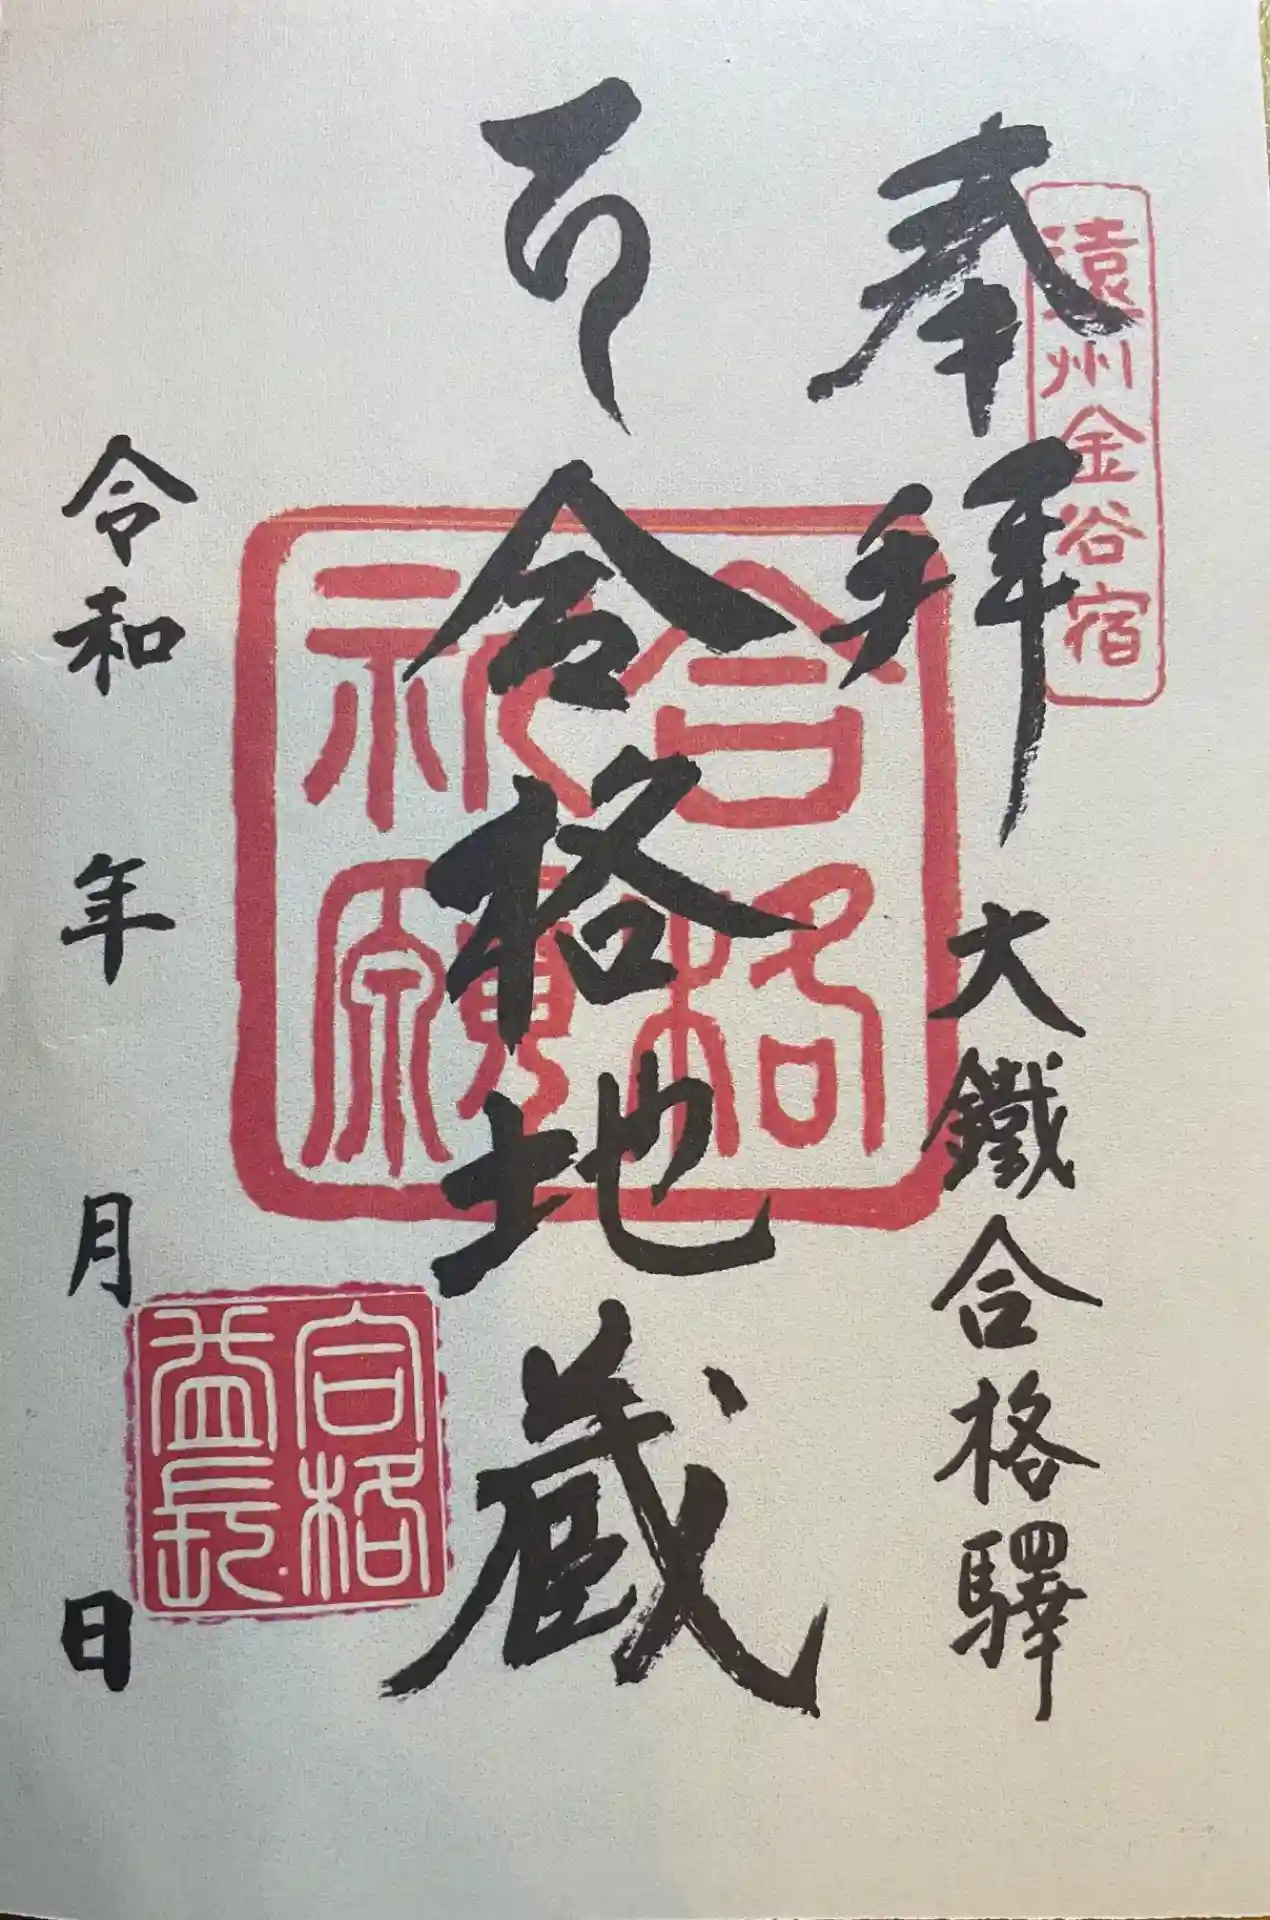 遠州金谷宿
奉拝
大鐵合格驛
合格地蔵
合格祈願
合格益長
令和 年 月 日